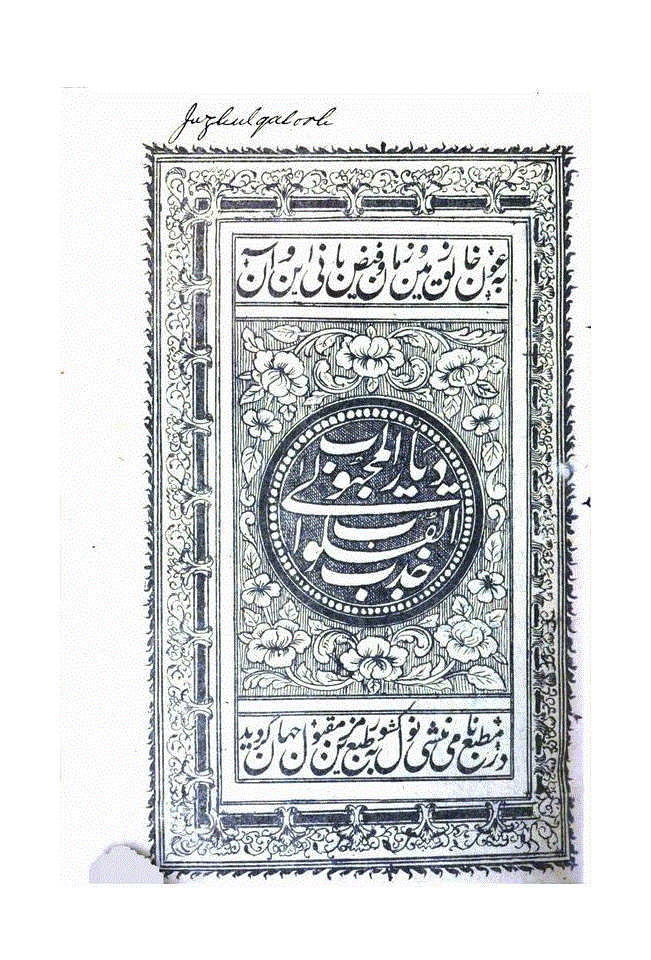 Juzbulqaloob
به عون خالق زمین و زمان و فیض بانی این و آن
جذب القلوب الی دیار المحبوب
در مطبع نامی منشی نول کشور به طبع مزین مقبول جهان گردید